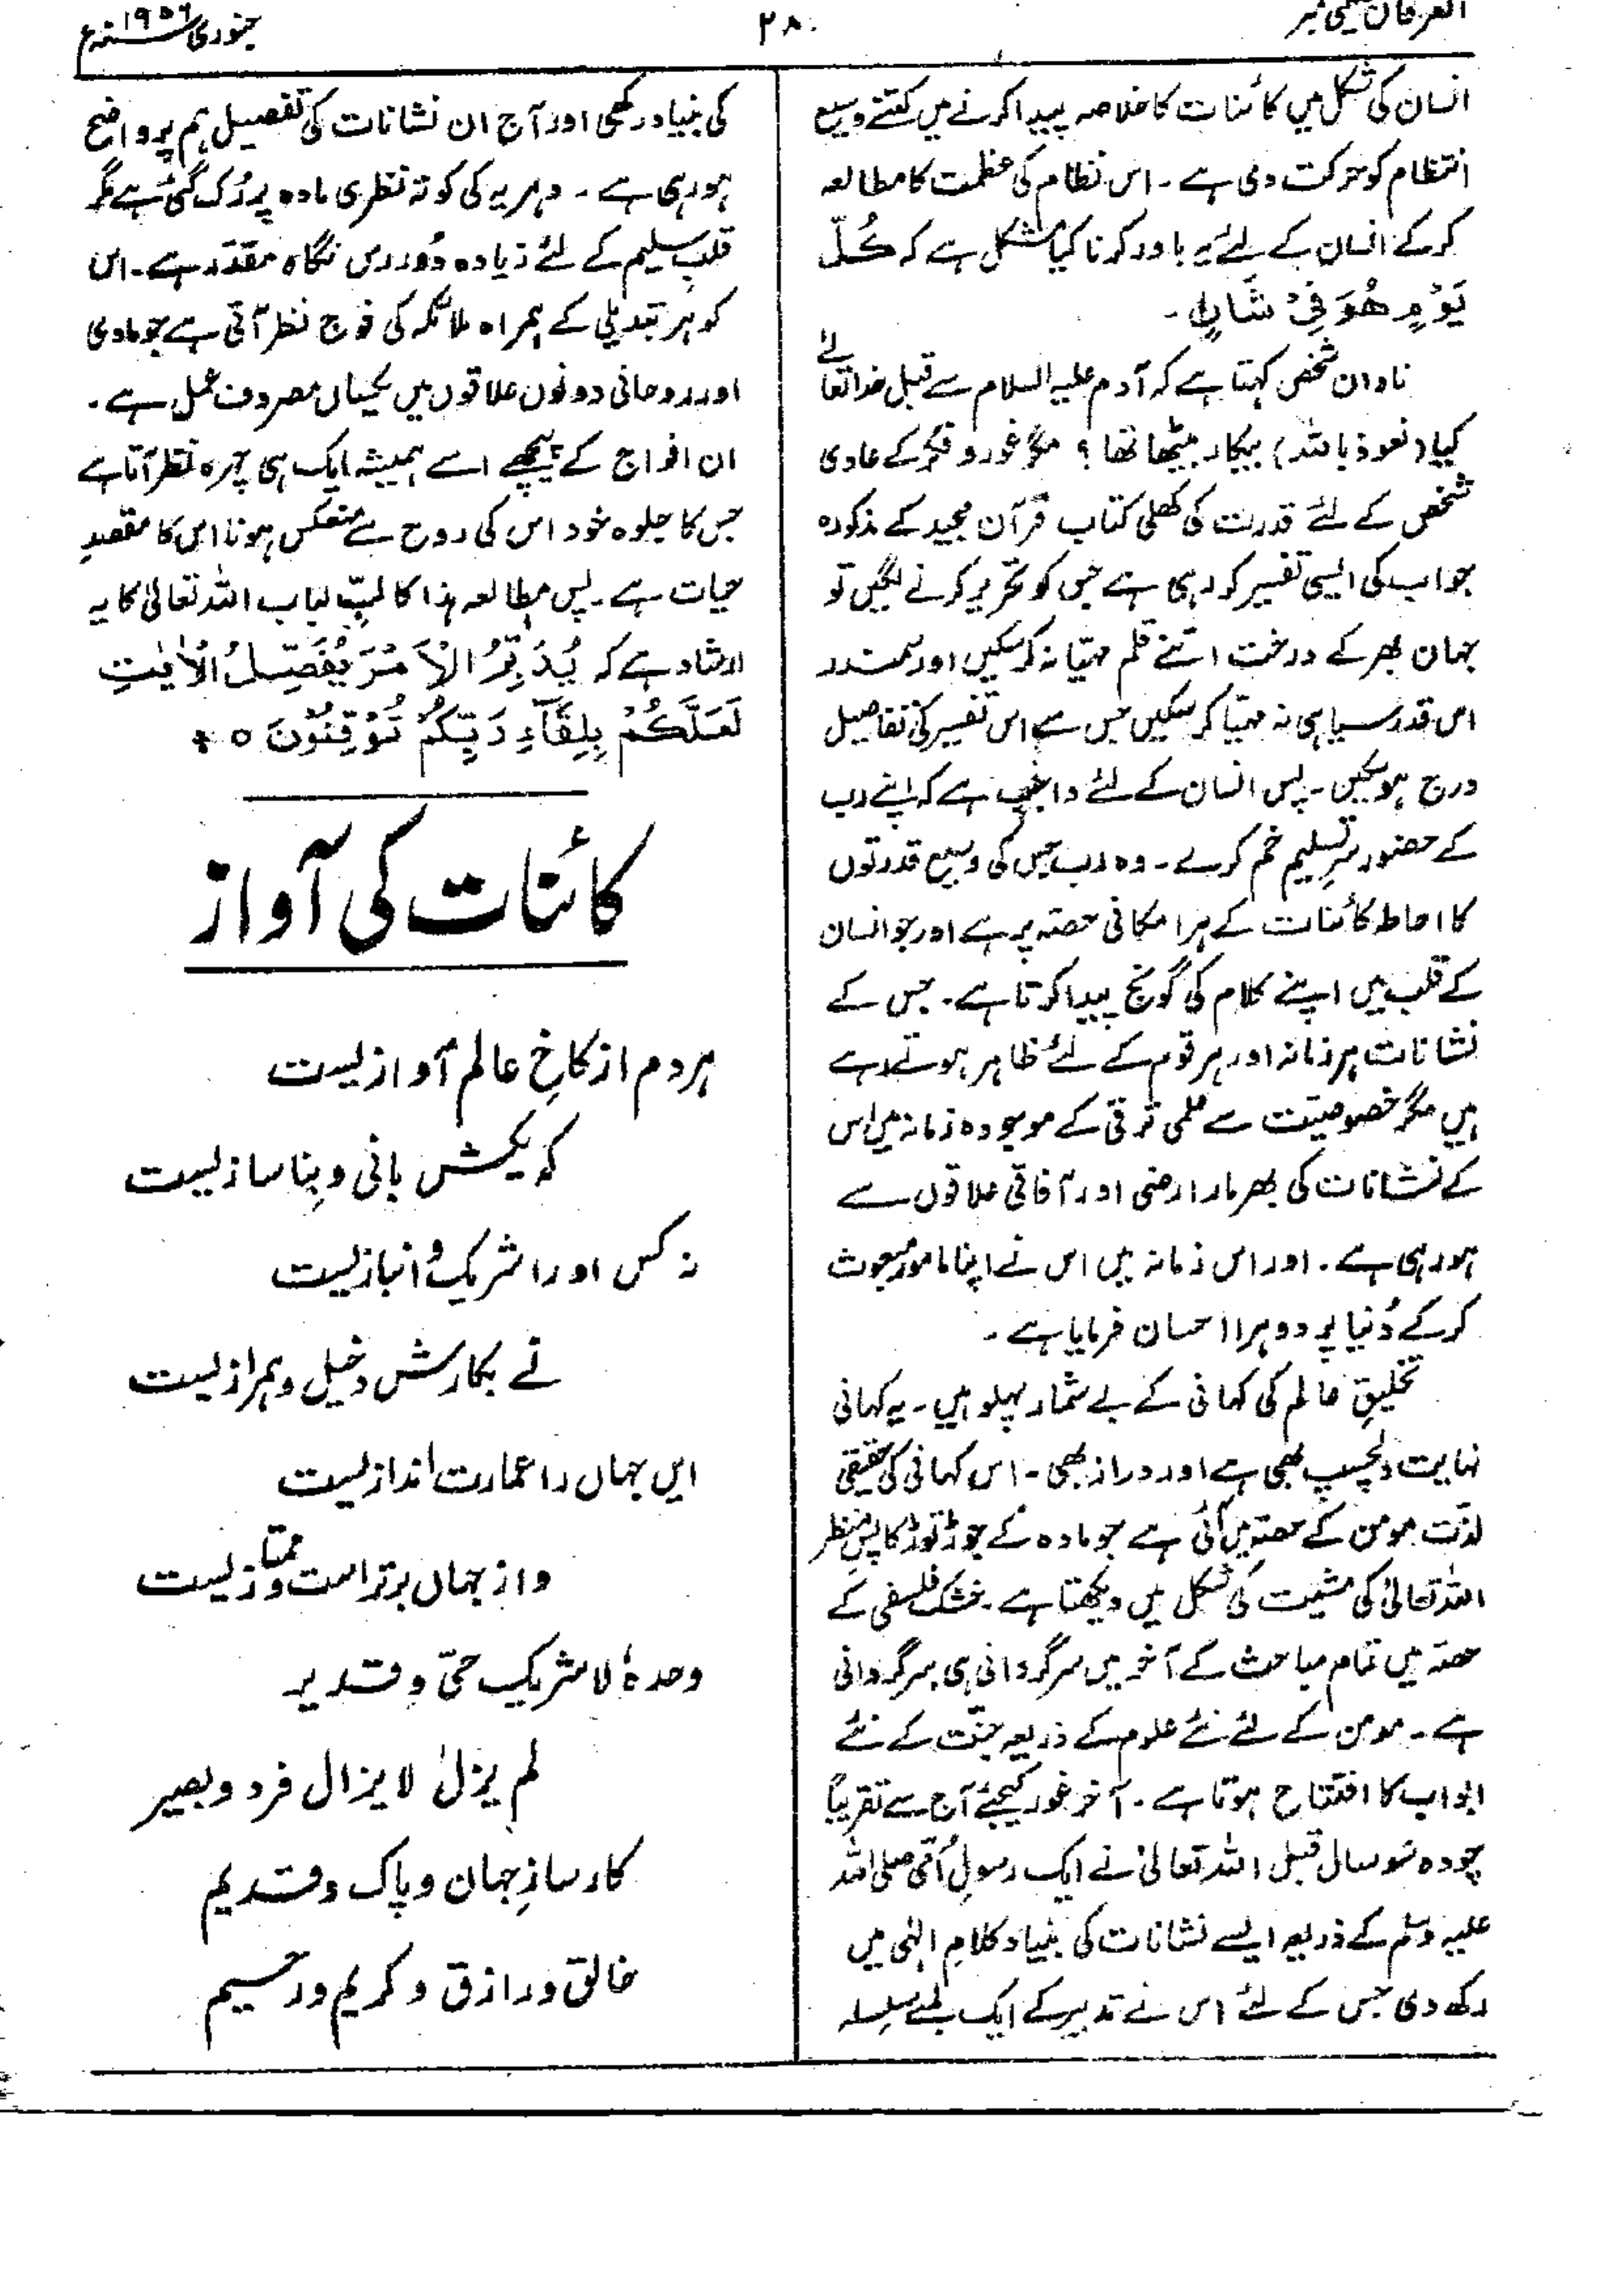 الفرقان علمی نمبر
۲۸
جنوری ۱۹۵۶ء
انسان کی شکل میں کائنات کا خلاصہ پیدا کرنے میں کتنے وسیع
انتظام کو حرکت دی ہے۔ اس نظام کی عظمت کا مطالعہ
کرکے انسان کے لئے یہ باور کرنا کیا مشکل ہے کہ کُلَّ
یَوْمٍ ھُوَ فِیْ شَاْنٍ۔
نادان شخص کہتا ہے کہ آدم علیہ السلام سے قبل خدا تعالےٰ
کیا (نعوذ باللہ) بیکار بیٹھا تھا؟ مگر غور و فکر کے عادی
شخص کے لئے قدرت کی کھلی کتاب قرآن مجید کے مذکورہ
جواب کی ایسی تفسیر کر رہی ہے جس کو تحریر کرنے لگیں تو
جہان بھر کے درخت اتنے قلم مہیّا نہ کر سکیں اور سمندر
اس قدر سیاہی نہ مہیّا کر سکیں جس سے اس تفسیر کی تفاصیل
درج ہو سکیں۔ پس انسان کے لئے واجب ہے کہ اپنے رب
کے حضور سرِ تسلیم خم کرے۔ وہ رب جس کی وسیع قدرتوں
کا احاطہ کائنات کے ہر امکانی حصّہ پر ہے اور جو انسان
کے قلب میں اپنے کلام کی گونج پیدا کرتا ہے۔ جس کے
نشانات ہر زمانہ اور ہر قوم کے لئے ظاہر ہوتے رہے
ہیں مگر خصوصیّت سے علمی ترقی کے موجودہ زمانہ میں اس
کے نشانات کی بھرمار ارضی اور آفاقی علاقوں سے
ہو رہی ہے۔ اور اس زمانہ میں اس نے اپنا مامور مبعوث
کرکے دُنیا پر دوہرا احسان فرمایا ہے۔
تخلیقِ عالم کی کہانی کے بے شمار پہلو ہیں۔ یہ کہانی
نہایت دلچسپ بھی ہے اور دراز بھی۔ اس کہانی کی حقیقی
لذّت مومن کے حصّہ میں آئی ہے جو مادہ کے جوڑ توڑ کا پسِ منظر
اللہ تعالیٰ کی مشیت کی شکل میں دیکھتا ہے۔ خشک فلسفی کے
حصّہ میں تمام مباحث کے آخر میں سرگردانی ہی سرگردانی
ہے۔ مومن کے لئے نئے علوم کے ذریعہ جنّت کے نئے
ابواب کا افتتاح ہوتا ہے۔ آخر غور کیجئے آج سے تقریباً
چودہ سو سال قبل اللہ تعالیٰ نے ایک رسولِ اُمّی صلی اللہ
علیہ وسلم کے ذریعہ ایسے نشانات کی بنیاد کلامِ الٰہی میں
رکھ دی جس کے لئے اس نے تدبیر کے ایک لمبے سلسلہ
کی بنیاد رکھی اور آج ان نشانات کی تفصیل ہم پر واضح
ہو رہی ہے۔ دہریہ کی کوتہ نظری مادہ پر رُک گئی ہے مگر
قلبِ سلیم کے لئے زیادہ دُوررس نگاہ مقدّر ہے۔ اس
کو ہر تبدیلی کے ہمراہ ملائکہ کی فوج نظر آتی ہے جو مادی
اور روحانی دونوں علاقوں میں یکساں مصروفِ عمل ہے۔
ان افواج کے پیچھے اسے ہمیشہ ایک ہی چہرہ نظر آتا ہے
جس کا جلوہ خود اس کی روح سے منعکس ہونا اس کا مقصدِ
حیات ہے۔ پس مطالعہ ہذا کا لُبِّ لباب اللہ تعالیٰ کا یہ
ارشاد ہے کہ یُدَبِّرُ الْاَمْرَ یُفَصِّلُ الْاٰیٰتِ
لَعَلَّکُمْ بِلِقَآءِ رَبِّکُمْ تُوْقِنُوْنَ ○ *
کائنات کی آواز
ہر دم از کاخِ عالم آوازیست
کہ یکش بانی و بِنا سازیست
نہ کس او را شریک و انبازیست
نے بکارش دخیل و ہمرازیست
ایں جہاں را عمارت اندازیست
واز جہاں برتراست و ممتازیست
وحدہٗ لاشریک حیّ و قدیر
لم یزل لا یزال فرد و بصیر
کارسازِ جہان و پاک و قدیم
خالق و رازق و کریم و رحیم